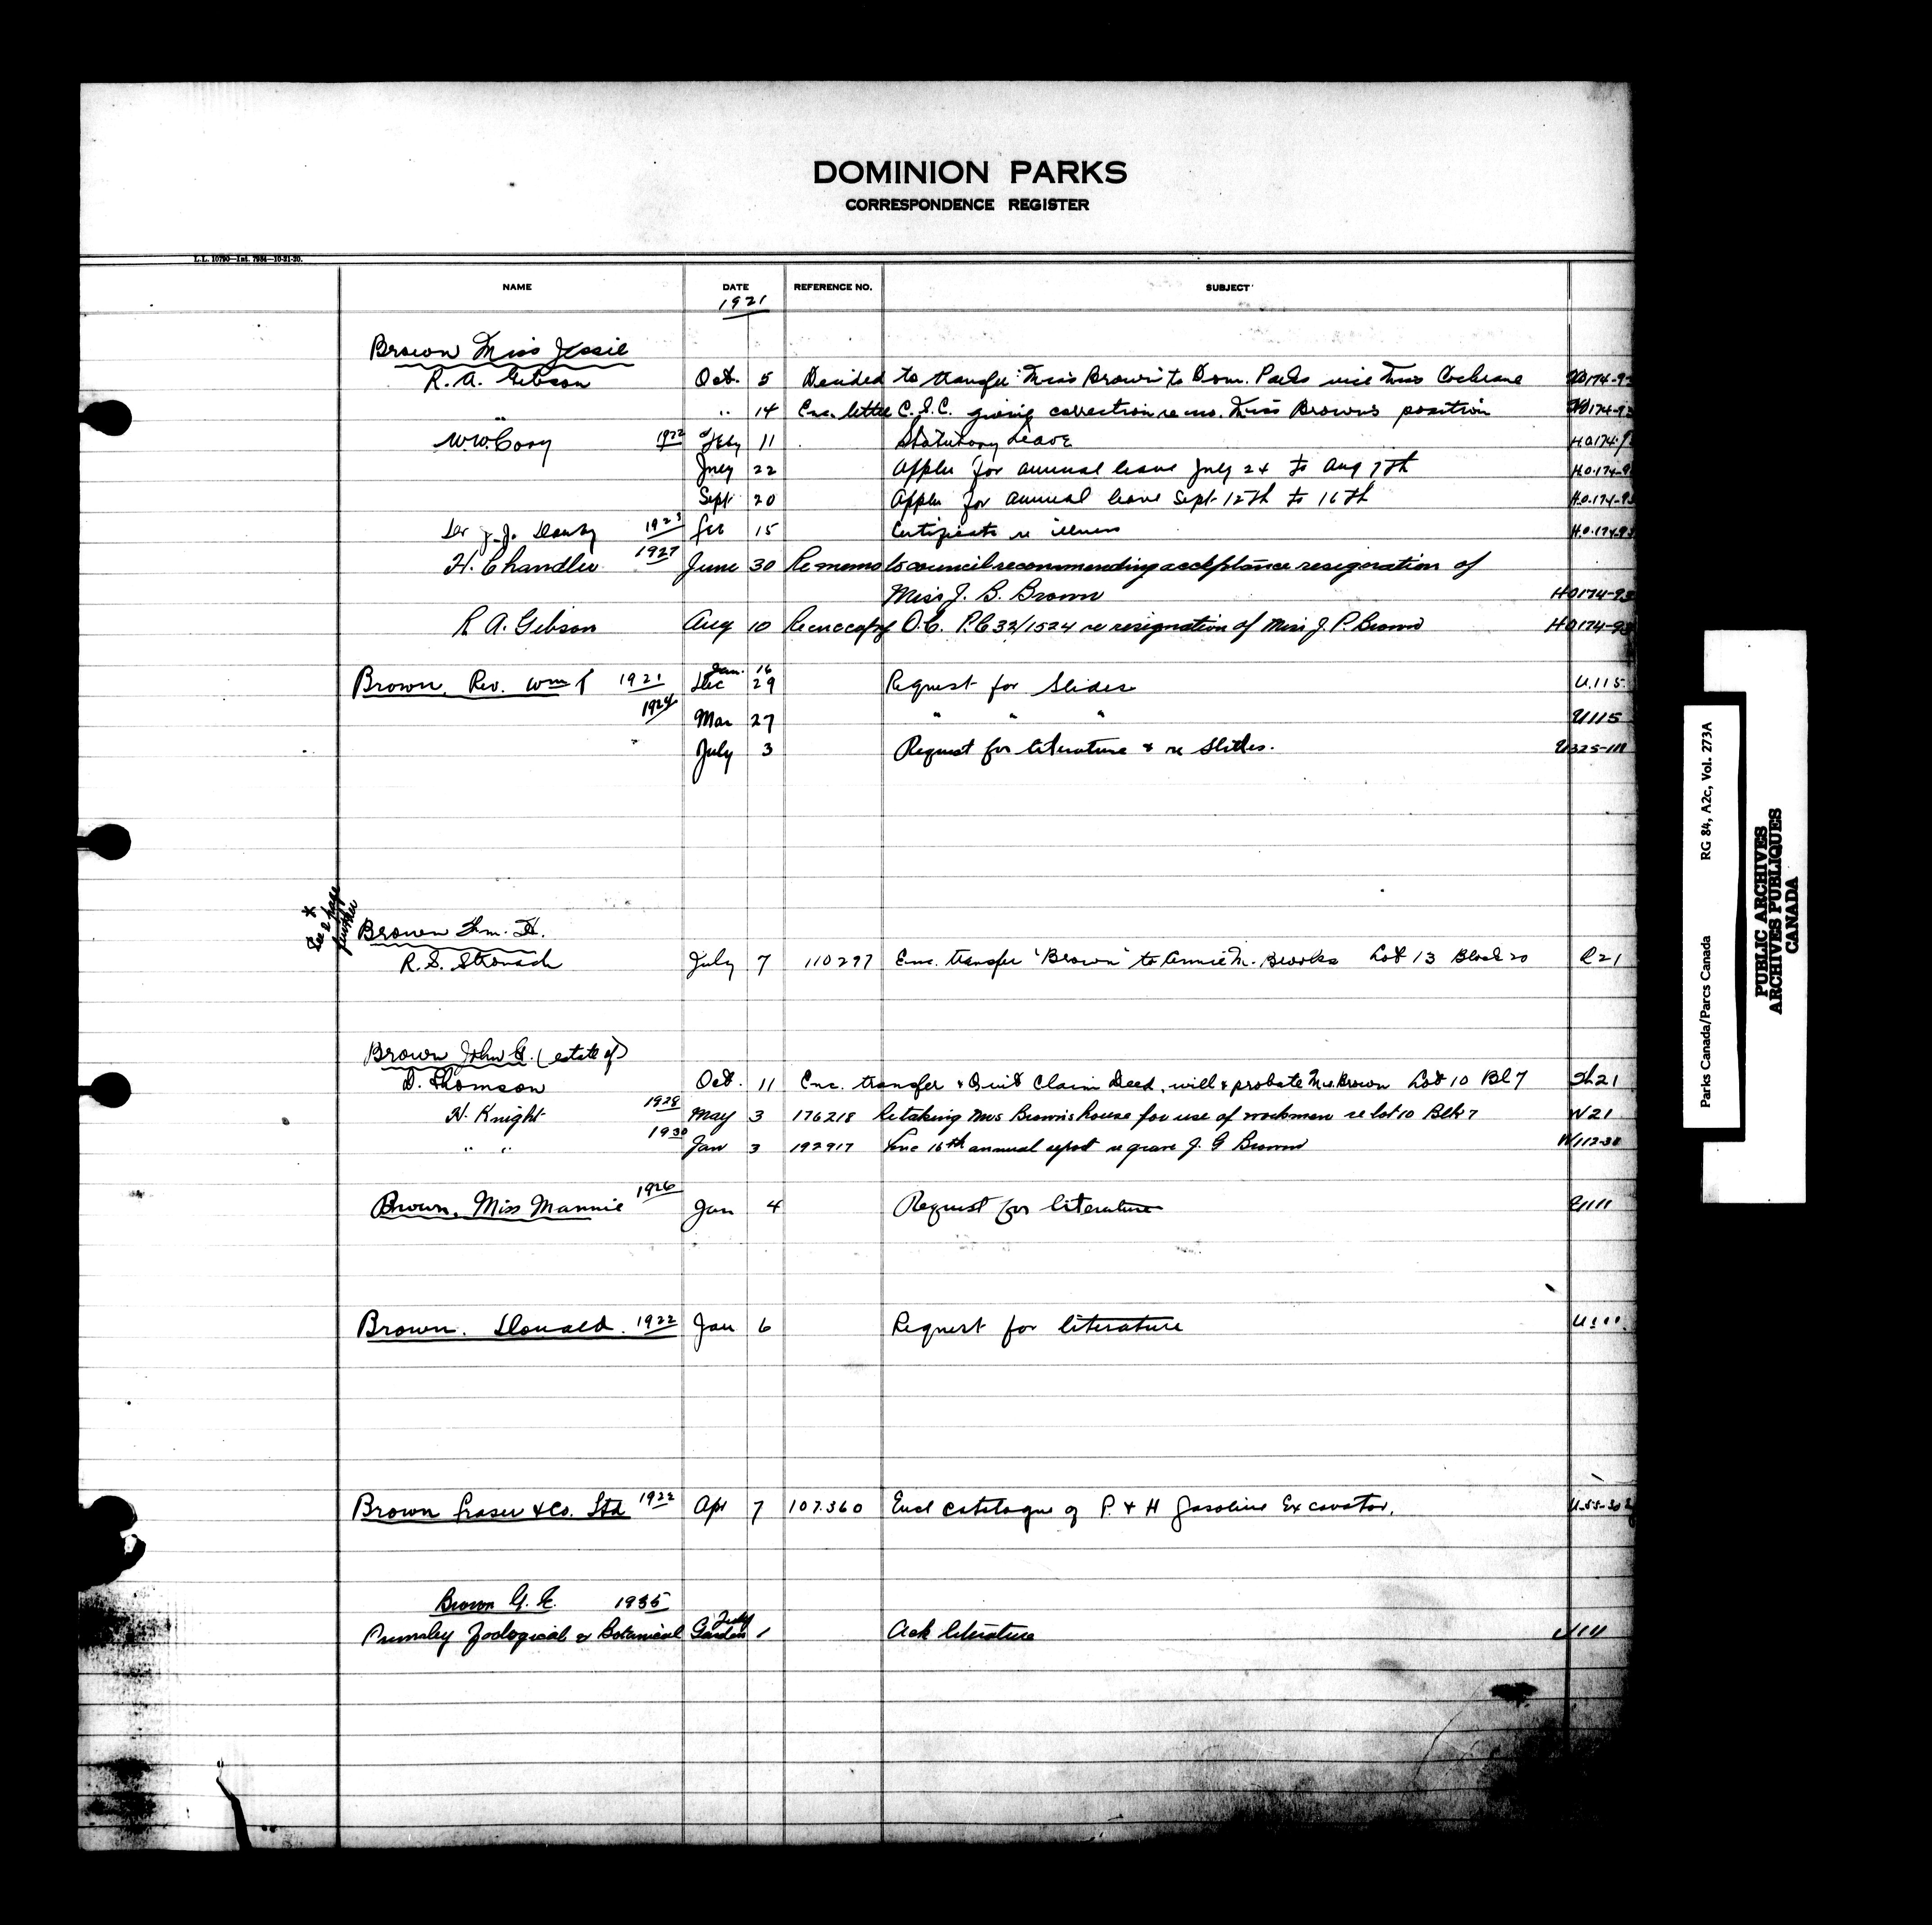 DOMINION PARKS
CORRESPONDENCE REGISTER
L.L. 10790—Int. 7984—10-21-20.
NAME DATE REFERENCE NO. SUBJECT
1921
Brown Miss Jessie
R. A. Gibson Oct. 5 Decided to transfer Miss Brown to Dom. Parks vice Miss Cochrane HO174-93
" " 14 Enc. letter C.S.C. giving correction re no. Miss Brown's position HO174-93
W.W. Cory 1922 Feby 11 Statutory Leave H.O.174-9
July 22 Applen for annual leave July 24 to Aug 7th H.O.174-9
Sept 20 Applen for annual leave Sept 12th to 16th H.O.174-93
Dr J.J. 1923 Feb 15 Certificate re illness H.O.174-93
H. Chandler 1927 June 30 Re memo to council recommending acceptance resignation of
Miss J. B. Brown HO174-93
R A. Gibson Aug 10 Re enc copy O.C. P.C 32/1524 re resignation of Miss J. P. Brown HO174-93
Jan. 16
Brown, Rev. Wm T 1921 Dec 29 Request for Slides U.115
1924 Mar 27 " " " U115
July 3 Request for literature & re Slides. U325-111
* See 2 page further
Brown Wm. H.
R.S. Stronach July 7 110297 Enc. transfer "Brown" to Annie M. Brooks Lot 13 Block 20 R21
Brown John G. (estate of)
D. Thomson Oct. 11 Enc. transfer & Quit Claim Deed, will & probate Mrs. Brown Lot 10 Bl 7 21
H. Knight 1928 May 3 176218 Re taking Mrs Brown's house for use of workmen re lot 10 Blk 7 W21
" " 1930 Jan 3 192917 Enc 16th annual report re grave J. G Brown W112-30
Brown, Miss Mannie 1926 Jan 4 Request for literature U111
Brown. Donald. 1922 Jan 6 Request for literature U111.
Brown Fraser & Co. Ltd 1922 Apr 7 107360 Encl catalogue of P. & H Gasoline Excavator. U.55-30
Brown G. E. 1935
Zoological & Botanical Gardens July 1 Ack literature U111
Parks Canada/Parcs Canada RG 84, A2c, Vol. 273A
PUBLIC ARCHIVES
ARCHIVES PUBLIQUES
CANADA